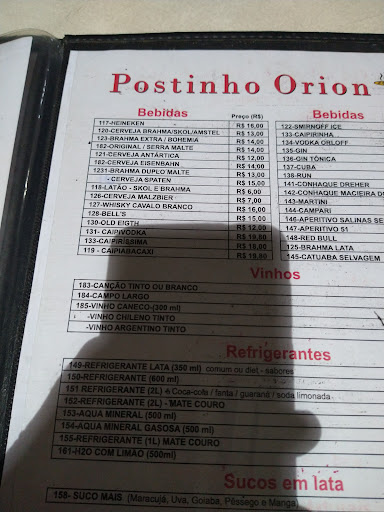 Postinho Orion
Bebidas Preço (R$)
117-HEINEKEN R$ 16,00
120-CERVEJA BRAHMA/SKOL/AMSTEL R$ 13,00
123-BRAHMA EXTRA / BOHEMIA R$ 14,00
182-ORIGINAL / SERRA MALTE R$ 14,00
121-CERVEJA ANTÁRTICA R$ 12,00
182-CERVEJA EISENBAHN R$ 14,00
1231-BRAHMA DUPLO MALTE R$ 13,00
- CERVEJA SPATEN R$ 15,00
118-LATÃO - SKOL E BRAHMA R$ 6,00
126-CERVEJA MALZBIER R$ 7,00
127-WHISKY CAVALO BRANCO R$ 16,00
128-BELL'S R$ 15,00
130-OLD EIGTH R$ 12,00
131- CAIPIVODKA
133-CAIPIRÍSSIMA
119 - CAIPIABACAXI R$ 19,80
Bebidas
122-SMIRNOFF ICE
133-CAIPIRINHA
134-VODKA ORLOFF
135-GIN
136-GIN TÔNICA
137-CUBA
138-RUN
141-CONHAQUE DREHER
142-CONHAQUE MACIEIRA DO
143-MARTINI
144-CAMPARI
146-APERITIVO SALINAS SE
147-APERITIVO 51
148-RED BULL
125-BRAHMA LATA
145-CATUABA SELVAGEM
Vinhos
183-CANÇÃO TINTO OU BRANCO
184-CAMPO LARGO
185-VINHO CANECO-(300 ml)
-VINHO CHILENO TINTO
-VINHO ARGENTINO TINTO
Refrigerantes
149-REFRIGERANTE LATA (350 ml) comum ou diet - sabores
150-REFRIGERANTE (600 ml)
151 REFRIGERANTE (2L) - Coca-cola / fanta / guaraná / soda limonada
152-REFRIGERANTE (2L) - MATE COURO
153-AQUA MINERAL (500 ml)
154-AQUA MINERAL GASOSA (500 ml)
155-REFRIGERANTE (1L) MATE COURO
161-H2O COM LIMÃO (500ml)
Sucos em lata
158- SUCO MAIS (Maracujá, Uva, Goiaba, Pêssego e Manga)